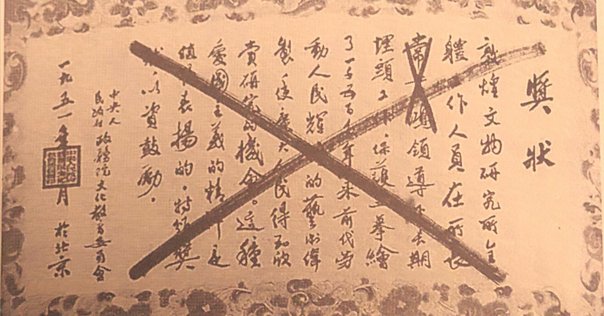 獎狀
敦煌文物研究所全
體工作人員在所長
常 鴻領導 長期
埋頭工作保護 摹繪
了一千五百 年來前代勞
動人民輝 的藝術偉
製,使廣大人民得到欣
賞研究的機会。這種
愛國主義的精神是
值 表揚的。特發獎
狀,以資鼓勵。
中央人
民政府 政務院文化教育委員會
一九五一年 月 於北京